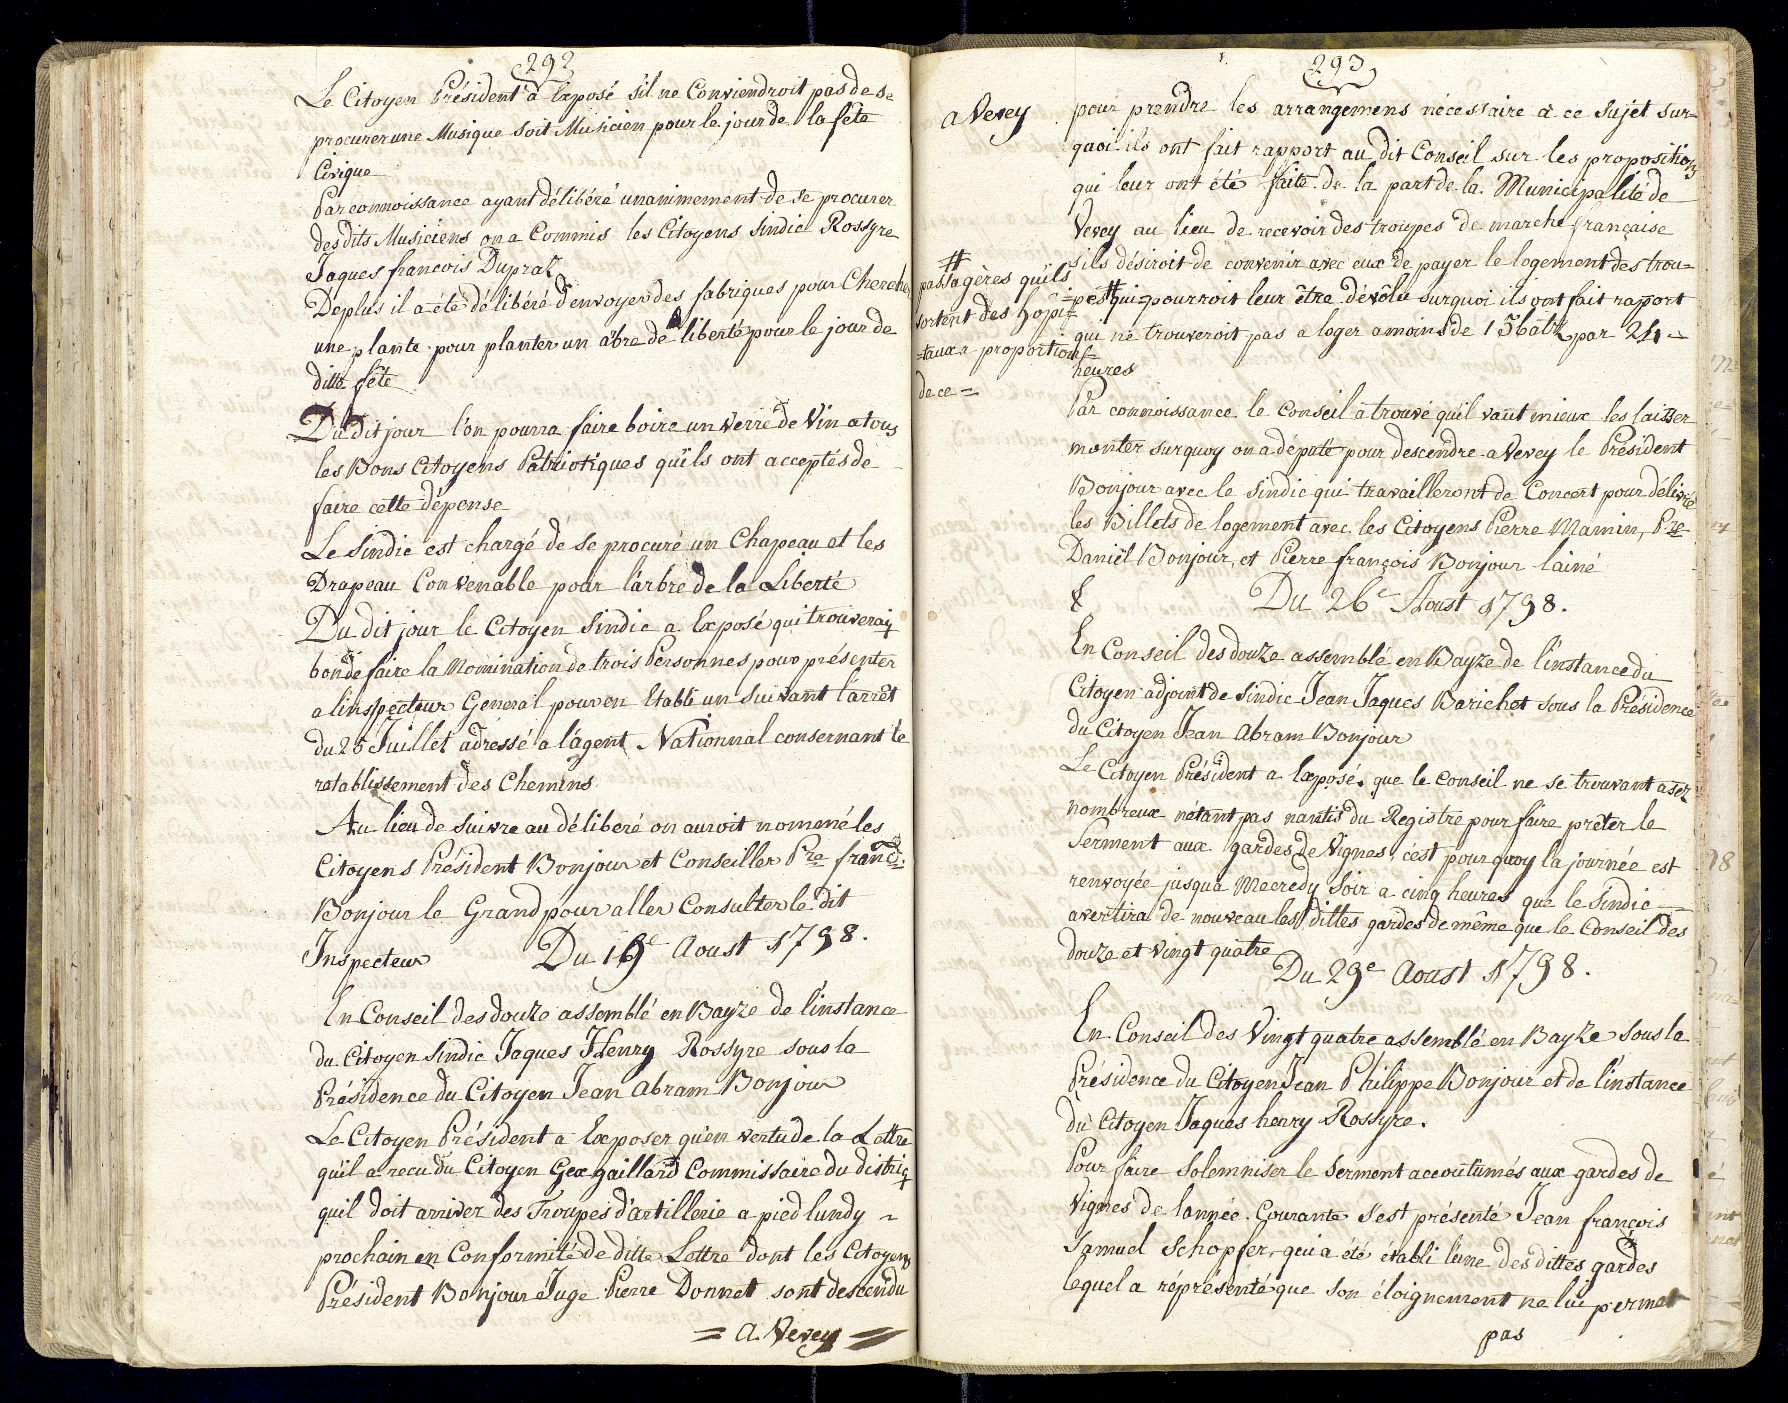 292
Le Citoyen Président a Exposé s'il ne Conviendroit pas de se
procurer une Musique soit Musicien pour le jour de la fête
Civique
Par connoissance ayant délibéré unanimement de se procurer
des dits Musiciens on a Commis les Citoyens Sindic Rossyre
Jaques francois Dupraz
Deplus il a été délibéré d'envoyer des fabriques pour Chercher
une plante pour planter un abre de liberté pour le jour de
ditte fête
Du dit jour l'on pourra faire boire un Verre de Vin a tous
les Bons Citoyens Patriotiques qu'ils ont acceptés de
faire cette dépense
Le Sindic est chargé de se procuré un Chapeau et les
Drapeau Convenable pour l'arbre de la Liberté
Du dit jour le Citoyen Sindic a Exposé qui trouverait
bon de faire la Nomination de trois Personnes pour présenter
a linspecteur General pour en Etabli un suivant l'arrêt
du 25 Juillet adressé a l'agent Nationnal consernant le
retablissement des Chemins
Au lieu de suivre au déliberé on auroit nommé les
Citoyens Président Bonjour et Conseiller Pre franc.
Bonjour le Grand pour aller Consulter le dit
Inspecteur Du 19e Aoust 1798.
En Conseil des douze assemblé en Bayze de l'instance
du Citoyen Sindic Jaques Henry Rossyre sous la
Présidence du Citoyen Jean Abram Bonjour
Le Citoyen Président a Exposer qu'en vertu de la Lettre
qu'il a recu du Citoyen Gex gaillard Commissaire du district
quil doit arriver des Troupes d'artillerie a pied lundy
prochain en Conformité de ditte Lettre dont les Citoyens
Président Bonjour Juge Pierre Donnet sont descendu
= a Vevey =
293
a Vevey pour prendre les arrangemens nécessaire a ce sujet sur=
quoi ils ont fait rapport au dit Conseil sur les propositions
qui leur ont été faite de la part de la Municipalité de
Vevey au lieu de recevoir des troupes de marche française
s'ils désiroit de convenir avec eux de payer le logement des trou=
=pes # qui pourroit leur être dévôlu surquoi ils ont fait raport
qui ne trouveroit pas a loger a moins de 15 batz par 24
heures
#
passagères qu'ils
sortent des hopi=
=taux a proportion
de ce =
Par connoissance le Conseil a trouvé qu'il vaut mieux les laisser
monter surquoy on a députe pour descendre a Vevey le Président
Bonjour avec le Sindic qui travailleront de Concert pour délivré
les Billets de logement avec les Citoyens Pierre Mamin, Pre
Daniël Bonjour, et Pierre françois Bonjour lainé
Du 26e Aoust 1798.
En Conseil des douze assemblé en Bayze de l'instance du
Citoyen adjoint de Sindic Jean Jaques Barichet sous la Présidence
du Citoyen Jean Abram Bonjour
Le Citoyen Président a Exposé que le Conseil ne se trouvant asez
nombreux n'étant pas nantis du Registre pour faire prêter le
Serment aux gardes de Vignes, c'est pourquoy la journée est
renvoyée jusqua Mecredy soir a cinq heures que le Sindic
avertira de nouveau les dittes gardes de même que le Conseil des
douze et vingt quatre
Du 29e Aoust 1798.
En Conseil des Vingt quatre assemblé en Bayze sous la
Présidence du Citoyen Jean Philippe Bonjour et de l'instance
du Citoyen Jaques henry Rossyre.
Pour faire solemniser le serment accoutumés aux gardes de
Vignes de lannée Courante s'est présenté Jean françois
Samuel Schopfer, qui a été établi l'une des dittes gardes
lequel a réprésenté que son éloignement ne lui permet
pas